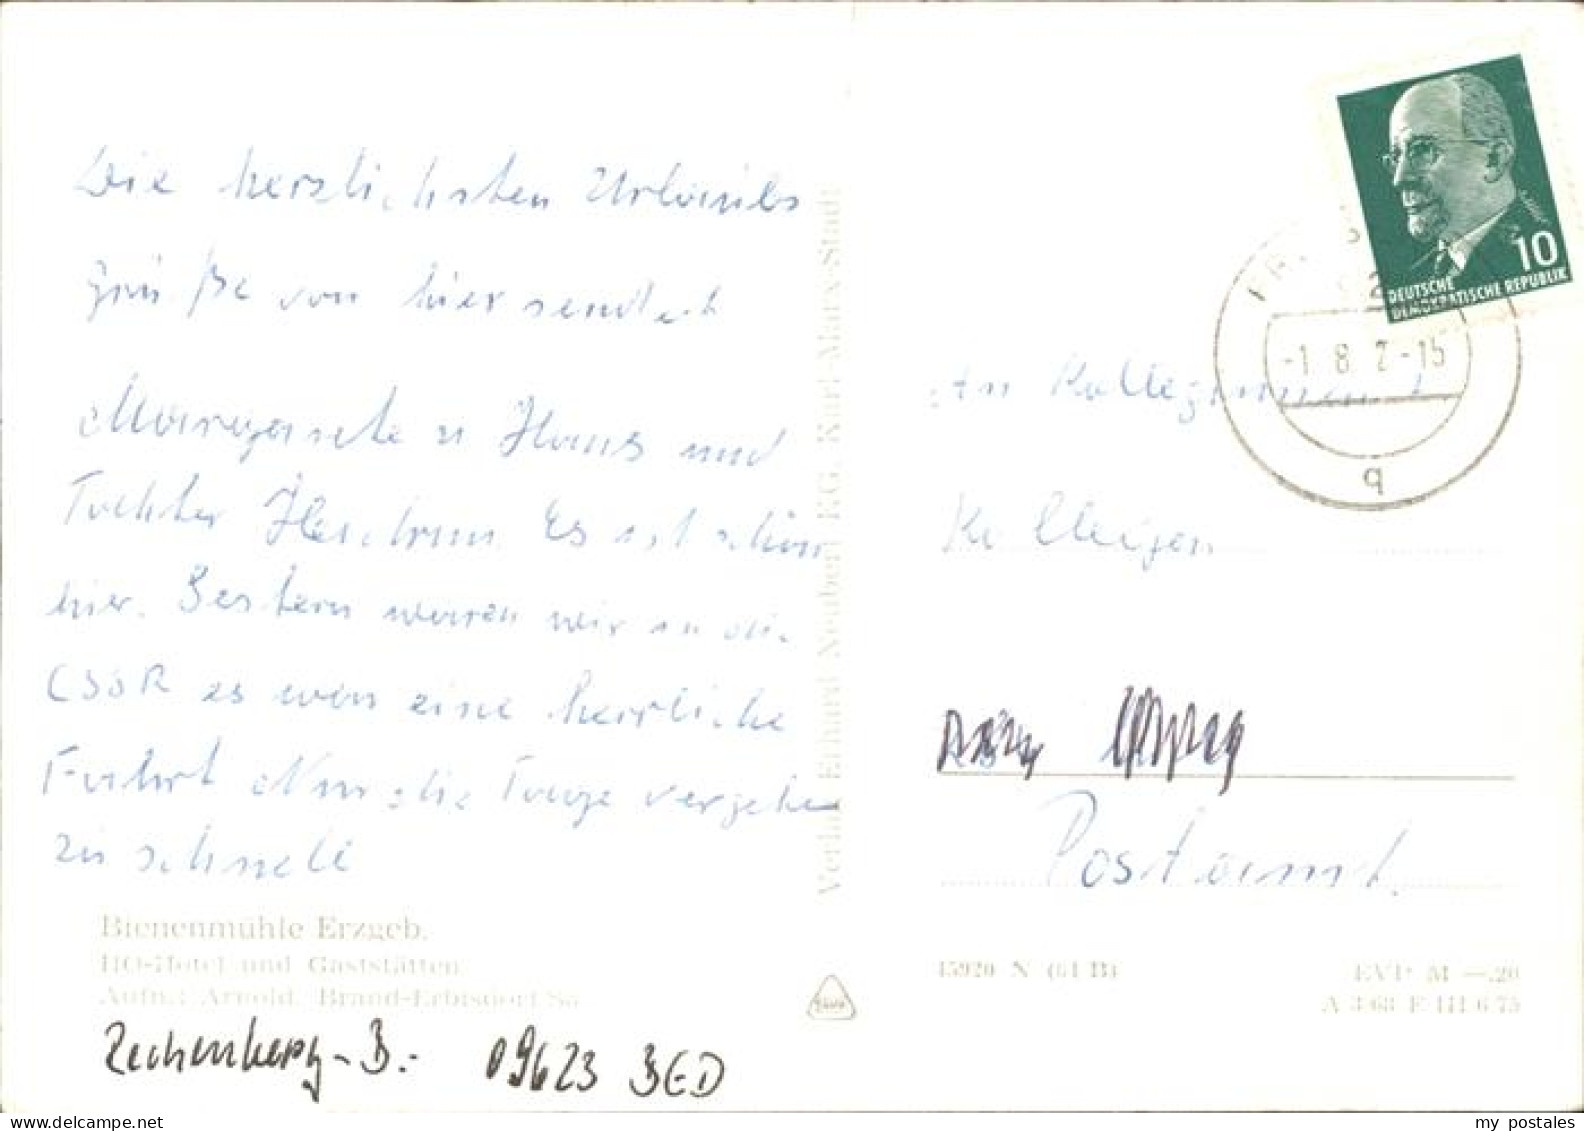 Die herzlichsten Urlaubs
grüße von hier sendet
Margarete u Hans und
Tochter Es ist schön
hier. Gestern waren wir in die
CSSR es war eine herrliche
Fahrt Nur die Tage vergehen
zu schnell
Bienenmühle Erzgeb.
HO-Hotel und Gaststätten
Aufn.: Arnold, Brand-Erbisdorf/Sa
Rechenberg-B.- 09623 BED
Verlag Erhard Neubert KG, Karl-Marx-Stadt
10
DEUTSCHE
DEMOKRATISCHE REPUBLIK
-1.8.7-15
q
An Kolleginnen u.
Kollegen
Postamt
45920 N (61 B)
EVP M —.20
A 3/68 F III/6/75
my postales